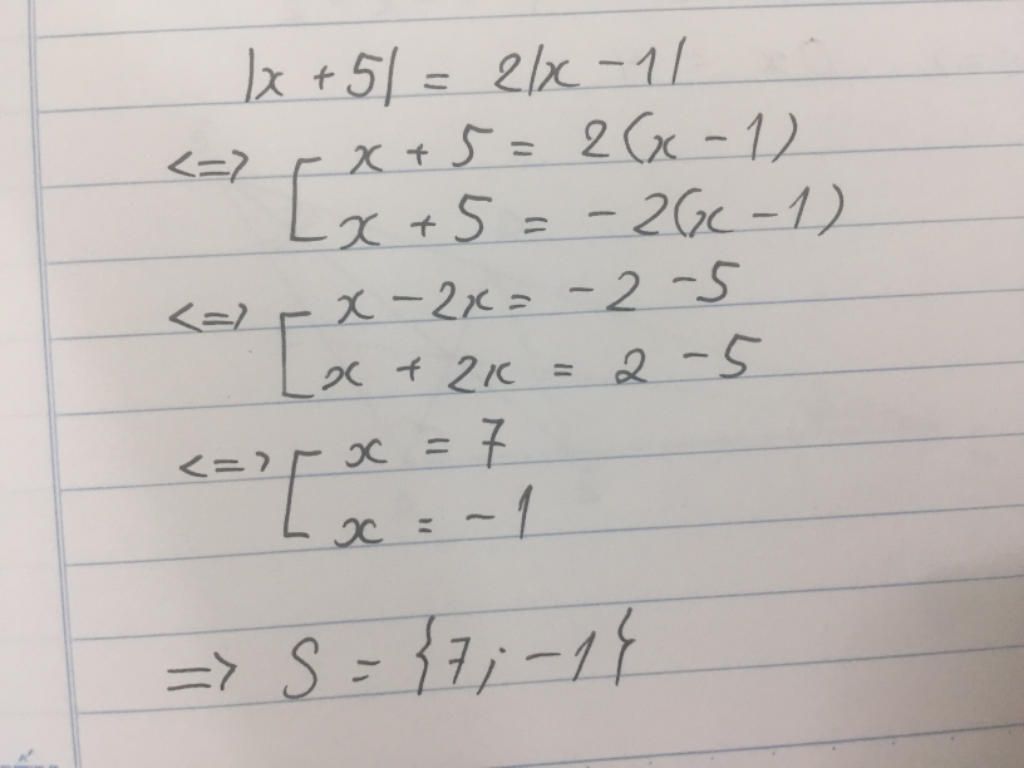 |x + 5| = 2|x - 1|
<=> [ x + 5 = 2(x - 1)
x + 5 = - 2(x - 1)
<=> [ x - 2x = - 2 - 5
x + 2x = 2 - 5
<=> [ x = 7
x = - 1
=> S = {7; - 1}